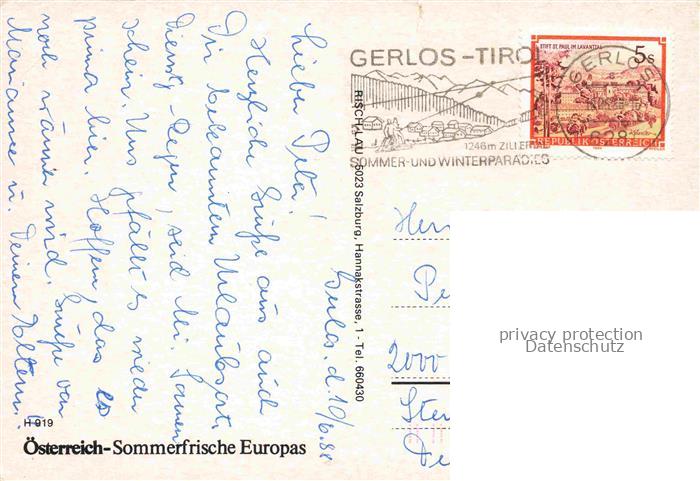 Gerlos, d. 10/6.88
Lieber Peter!
Herzliche Grüße aus auch
Dir bekanntem Urlaubsort.
Dienstg - Regen, seid Mi. Sonnen
schein. Uns gefällt es wieder
prima hier. Hoffen, das es
noch wärmer wird. Grüße von
Marianne u. Deinen Eltern.
H 919
Österreich-Sommerfrische Europas
RISCH-LAU - 5023 Salzburg, Hannakstrasse, 1 - Tel. 660430
GERLOS-TIROL
1246m ZILLERTAL
SOMMER-UND WINTERPARADIES
STIFT ST. PAUL IM LAVANTTAL
5s
REPUBLIK ÖSTERREICH
GERLOS
Herr
Pe
2000
Ste
privacy protection
Datenschutz